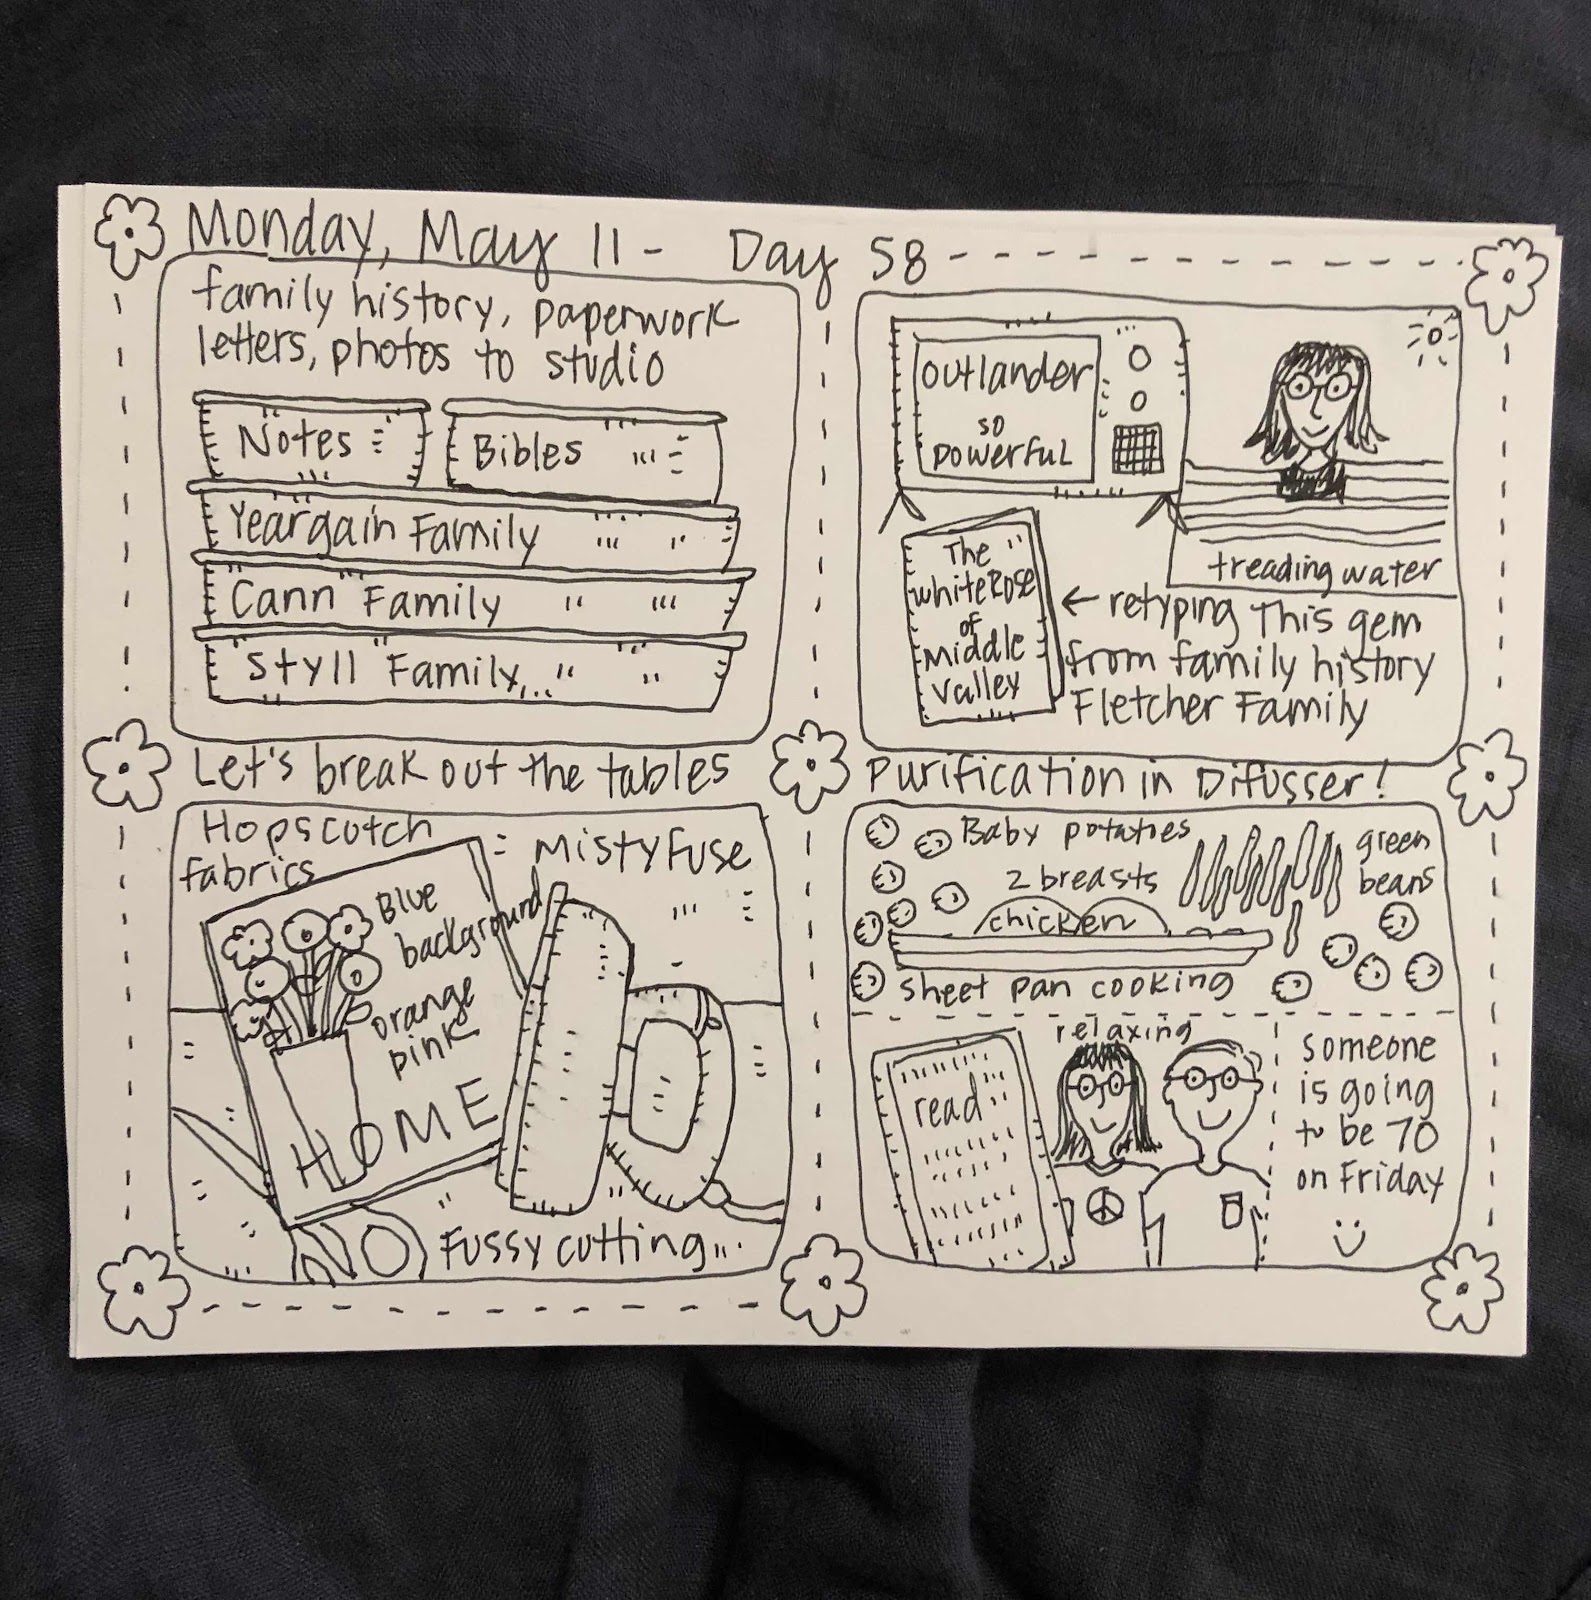 Monday, May 11 - Day 58
family history, paperwork
letters, photos to studio
Notes
Bibles
Yeargain Family
Cann Family
Styll Family
Let's break out the tables
outlander
so
powerful
treading water
The
White Rose
of
Middle
Valley
← retyping This gem
from family history
Fletcher Family
Purification in Difusser!
Hopscotch
fabrics
MistyFuse
Blue
background
orange
pink
HOME
Fussy cutting...
Baby potatoes
2 breasts
chicken
green
beans
sheet pan cooking
relaxing
read
someone
is going
to be 70
on Friday